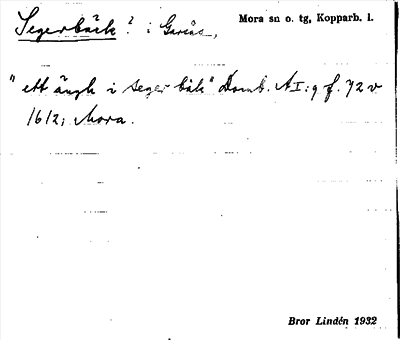 Segerbäck? i Garsås,
Mora sn o. tg, Kopparb. l.
"ett ängh i seger bäk" Domb. AI:9 f. 72 v
1612; Mora.
Bror Lindén 1932